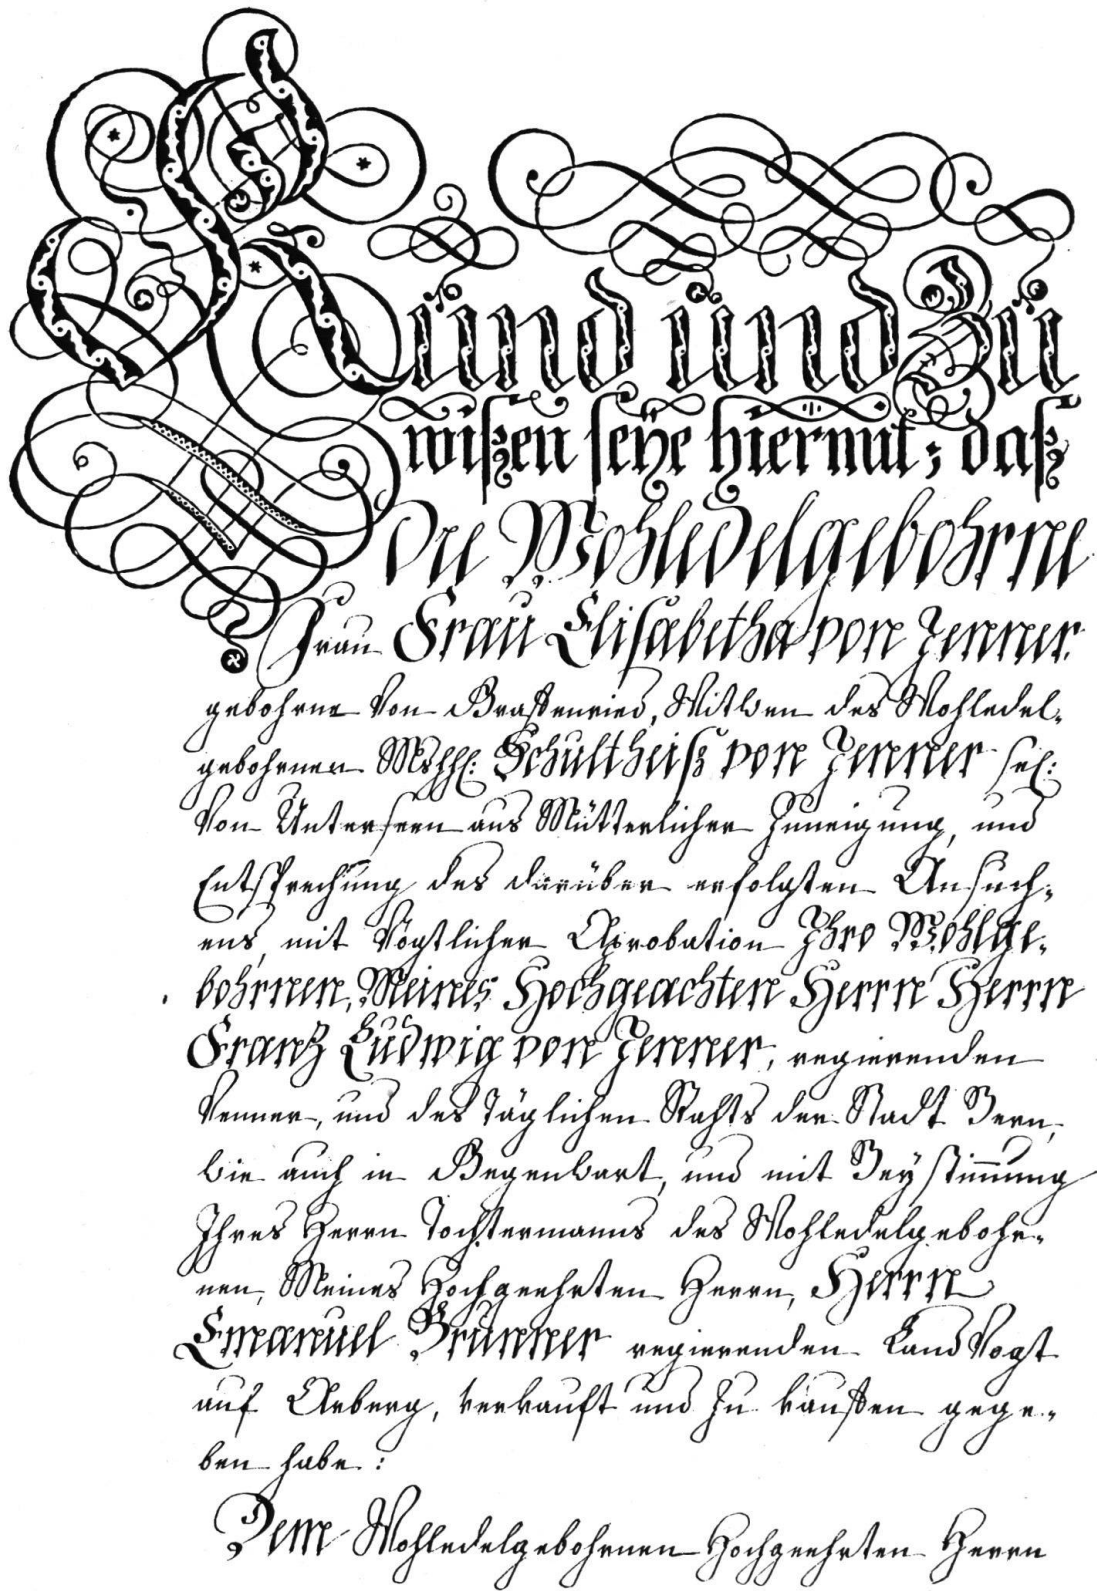 Kund und Zu
wißen seÿe hiermit; daß
Die Wohledelgebohrne
Frau Frau Elisabetha von Jenner
gebohrne von Graffenried, Witwen des Wohledel-
gebohrnen MshgH: Schultheiß von Jenner sel:
von Unterseen aus Mütterlicher Zuneigung, und
Entsprechung des darüber erfolgten Ansuch-
ens, mit Vögtlicher Aprobation Ihro Wohlge-
bohrnen, Meines Hochgeachten Herrn Herrn
Frantz Ludwig von Jenner, regierenden
Venner, und des Täglichen Rahts der Stadt Bern,
wie auch in Gegenwart, und mit Beystim̄ung
Ihres Herrn Tochtermanns des Wohledelgebohr-
nen, Meines Hochgeehrten Herrn, Herrn
Emanuel Brunner regierenden Landvogt
auf Arberg, verkauft und zu kauffen gege-
ben habe:
Dem Wohledelgebohrnen Hochgeehrten Herrn